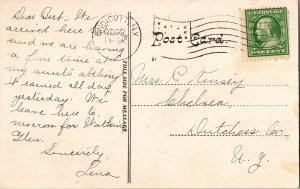 Dear Bert: We
arrived here
and we are having
a fine time at
my aunts altho
it rained all day
yesterday. We
leave here to-
morrow for Watkins
Glen.
Sincerely,
Lena
THIS SIDE FOR MESSAGE
ENDICOTT, N.Y.
Post Card.
Miss C. Kinsey
Chelsea,
Dutchess Co.
N.Y.
U.S. POSTAGE
ONE CENT